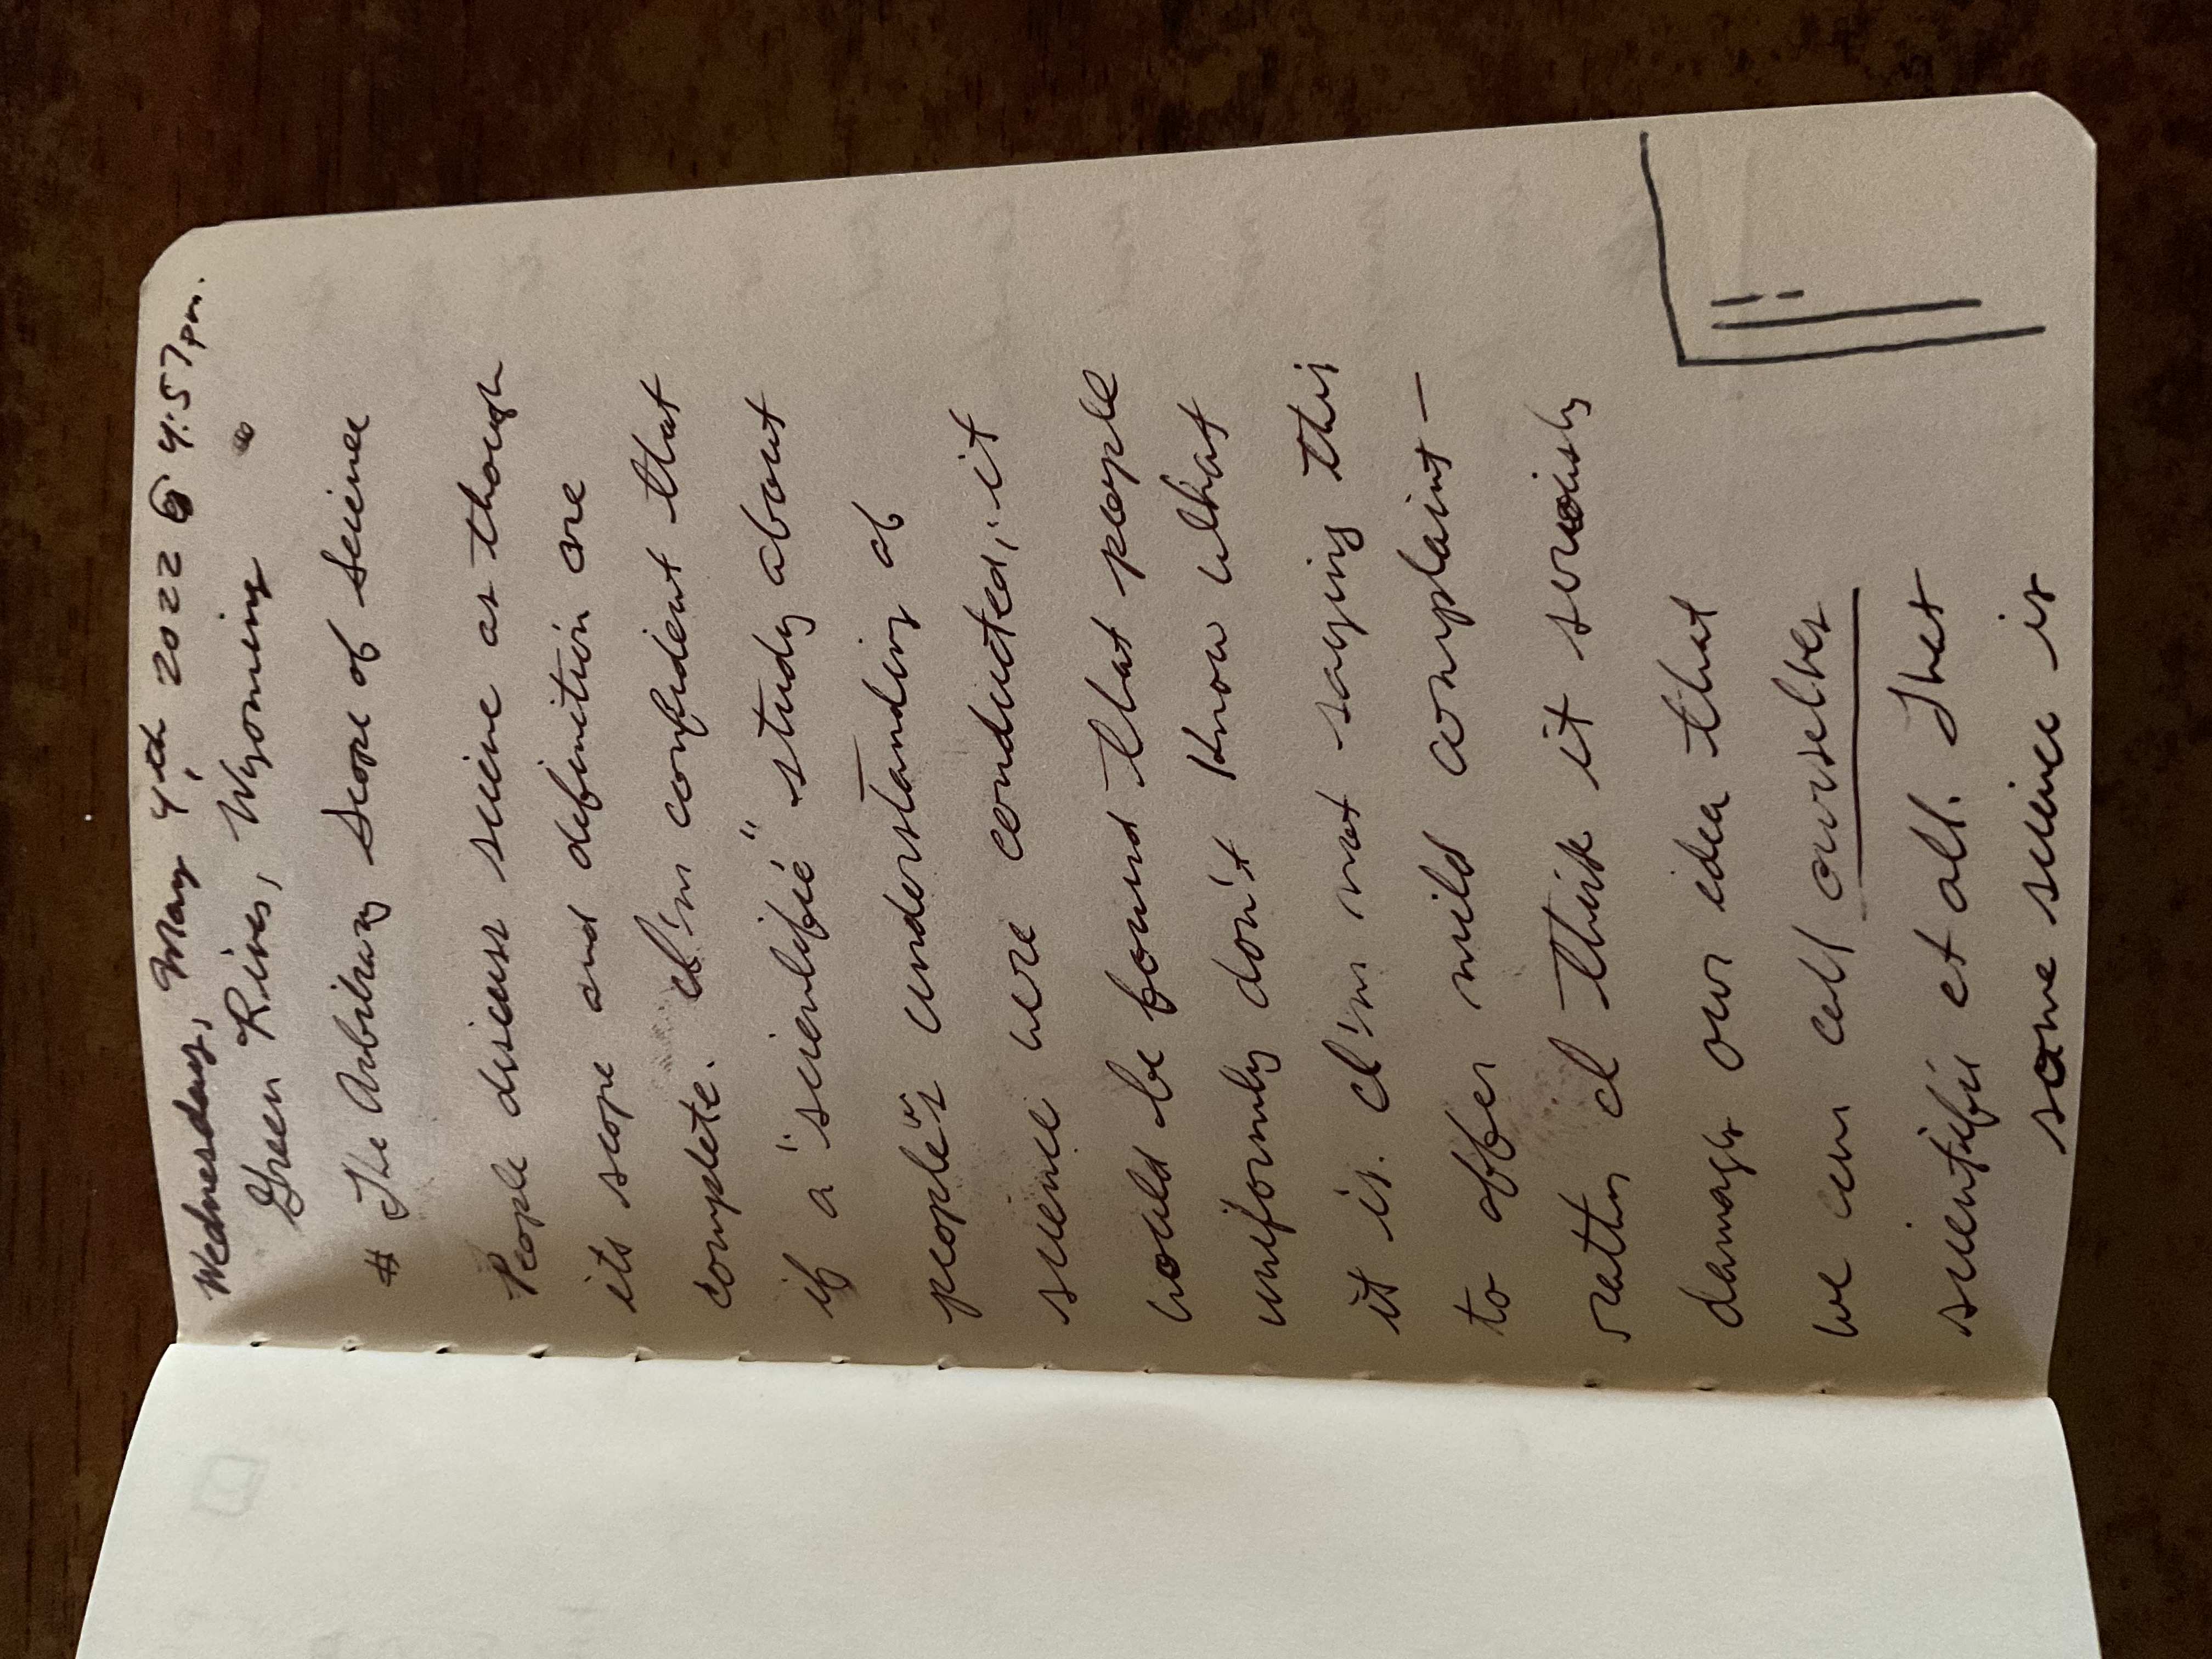 Wednesday, May 4th, 2022 @ 4:57pm.
Green River, Wyoming
# The Arbitrary Scope of Science
People discuss science as though
its scope and definition are
complete. I'm confident that
if a "scientific" study about
people's understanding of
science were conducted, it
would be found that people
uniformly don't know what
it is. I'm not saying this
to offer mild complaint —
rather I think it seriously
damages our idea that
we can call ourselves
scientific et all. That
some science is